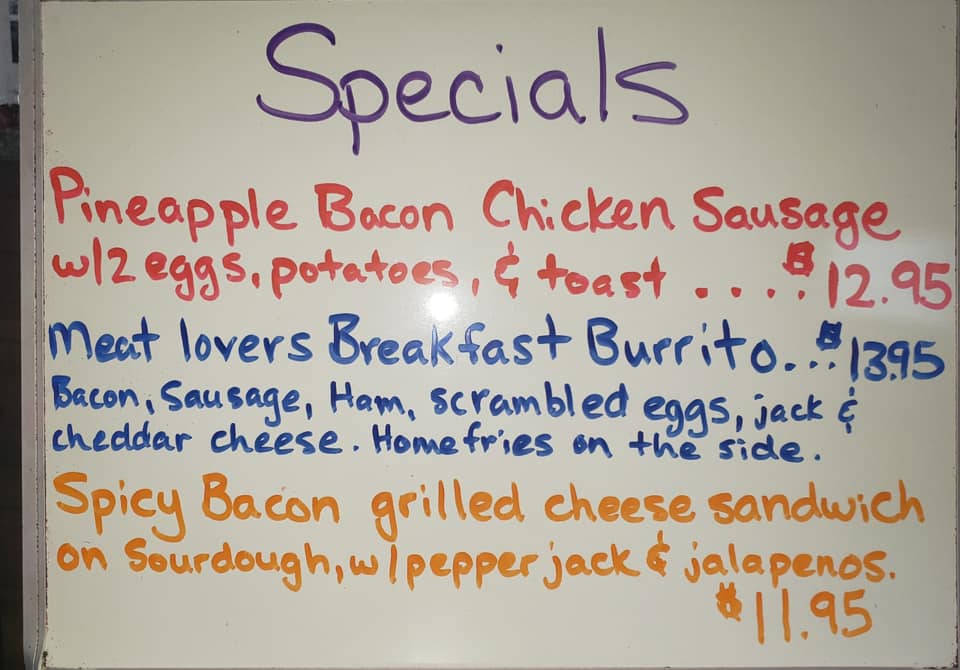 Specials
Pineapple Bacon Chicken Sausage
w/2 eggs, potatoes, & toast .... $12.95
Meat lovers Breakfast Burrito... $13.95
Bacon, Sausage, Ham, scrambled eggs, jack &
cheddar cheese. Homefries on the side.
Spicy Bacon grilled cheese sandwich
on Sourdough, w/pepper jack & jalapenos.
$11.95